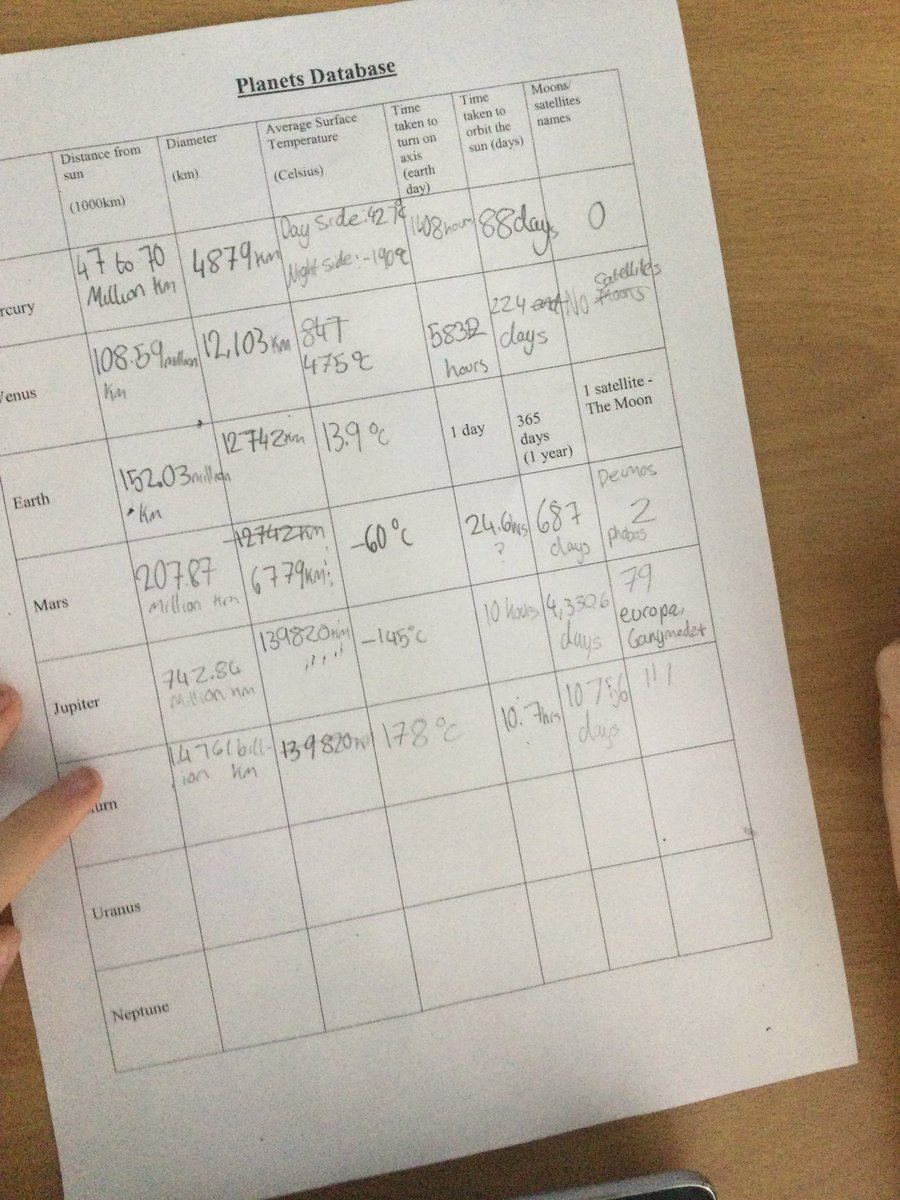 Planets Database
Distance from
sun
(1000km)
Diameter
(km)
Average Surface
Temperature
(Celsius)
Time
taken to
turn on
axis
(earth
day)
Time
taken to
orbit the
sun (days)
Moons/
satellites
names
rcury
47 to 70
Million Km
4879Km
Day Side: 427°C
Night Side: -190°C
1408hours
88days
0
Venus
108.59million
Km
12,103 Km
847
475°C
5832
hours
224 and
days
No Satellites
Moons
Earth
152.03million
Km
12742Km
13.9°C
1 day
365
days
(1 year)
1 satellite -
The Moon
Mars
207.87
Million Km
12742Km
6779Km
-60°C
24.6hrs
?
687
days
Deimos
2
phobos
Jupiter
742.84
Million Km
139820Km
-145°C
10 hours
4,330.6
days
79
europa,
Ganymedet
urn
1.4761bill-
ion Km
139820Km
178°C
10.7hrs
10756
days
Uranus
Neptune